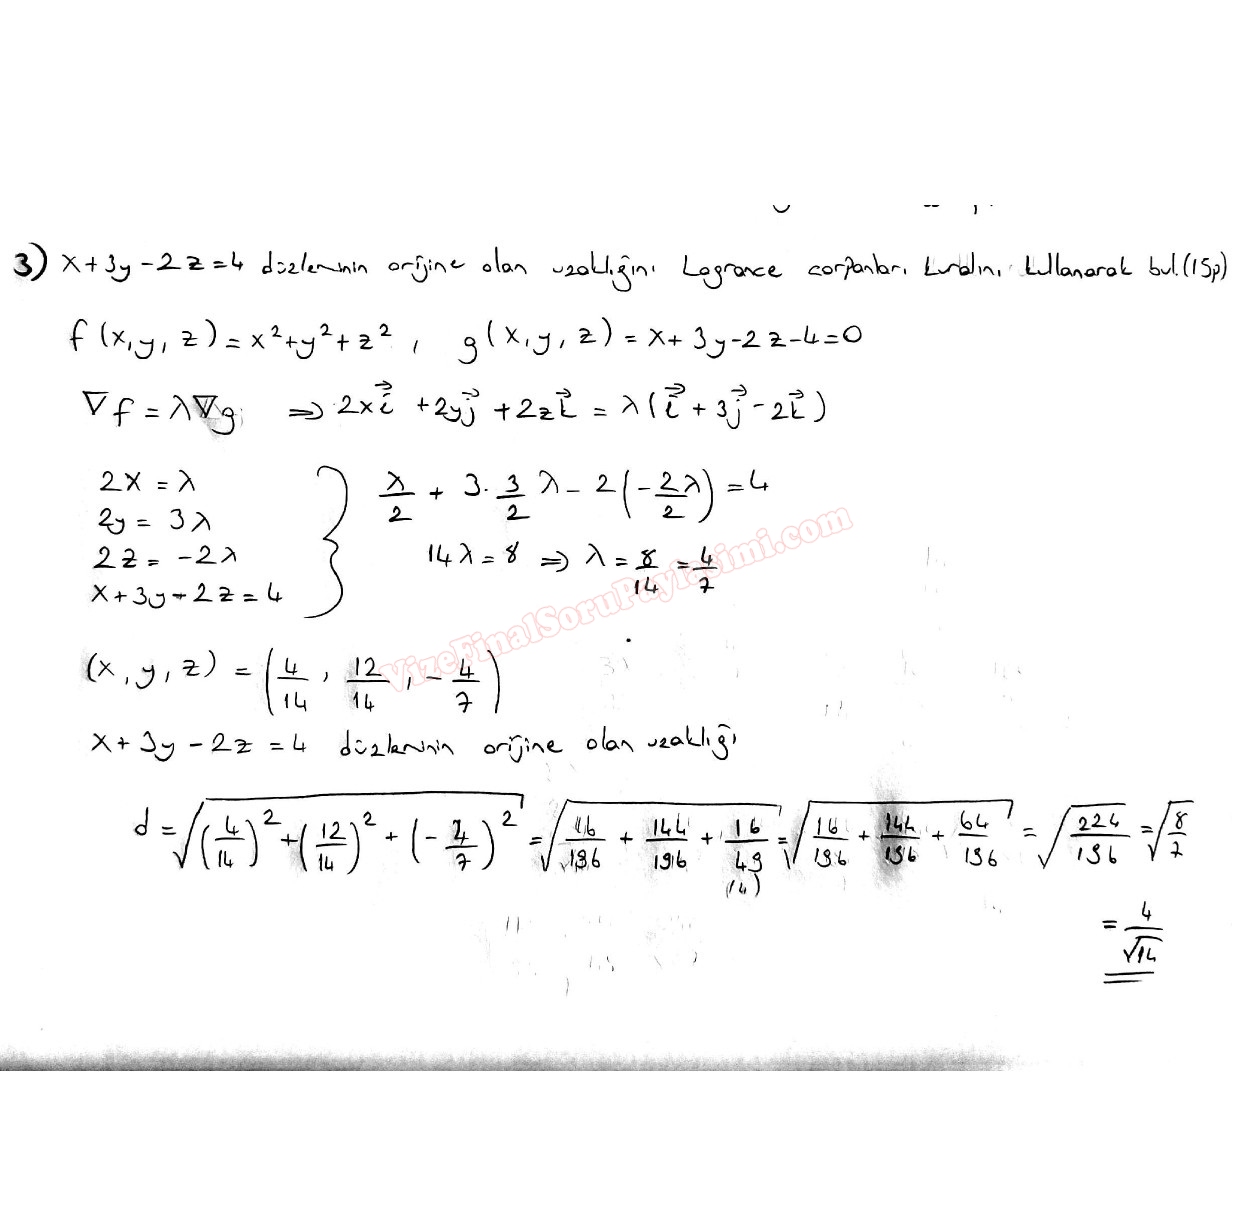 3) x+3y-2z=4 düzleminin orijine olan uzaklığını Lagrance çarpanları kuralını kullanarak bul.(15p)
f(x,y,z)=x²+y²+z² , g(x,y,z)=x+3y-2z-4=0
∇f=λ∇g ⇒ 2xi⃗ +2yj⃗ +2zk⃗ = λ(i⃗+3j⃗-2k⃗)
2x=λ
2y=3λ
2z=-2λ
x+3y-2z=4
λ/2 + 3·3/2 λ - 2(-2λ/2)=4
14λ=8 ⇒ λ=8/14=4/7
VizeFinalSoruPaylasimi.com
(x,y,z)=(4/14, 12/14, -4/7)
x+3y-2z=4 düzleminin orijine olan uzaklığı
d=√((4/14)²+(12/14)²+(-4/7)²)=√(16/196+144/196+16/49)=√(16/196+144/196+64/196)=√(224/196)=√(8/7)
(14)
=4/√14